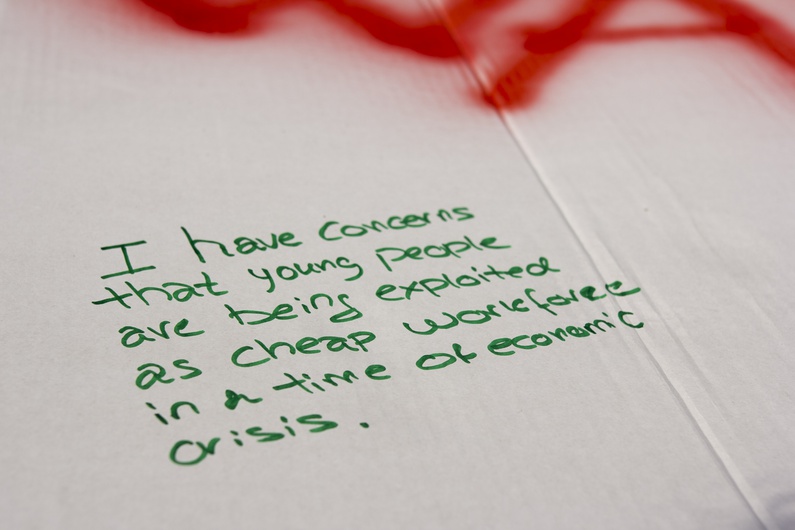 I have concerns
that young people
are being exploited
as cheap workforce
in a time of economic
crisis.